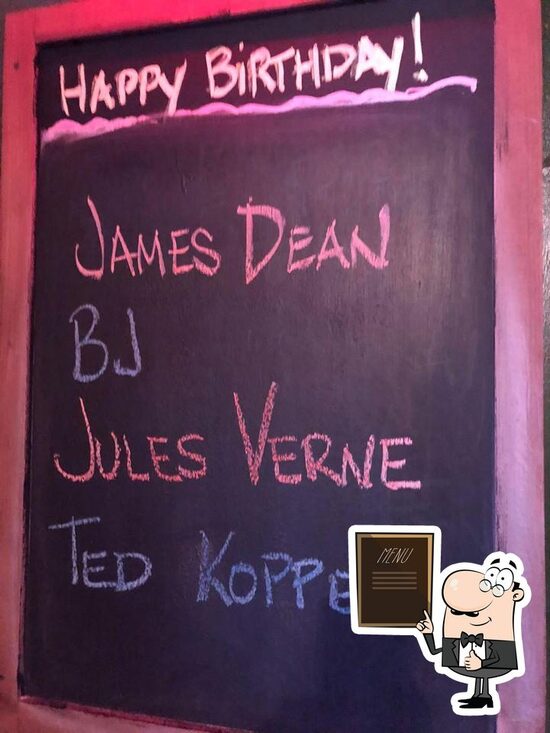 HAPPY BIRTHDAY!
JAMES DEAN
BJ
JULES VERNE
TED KOPPE
MENU